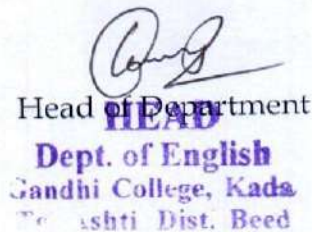 Head of Department
HEAD
Dept. of English
Gandhi College, Kada
Dist. Beed